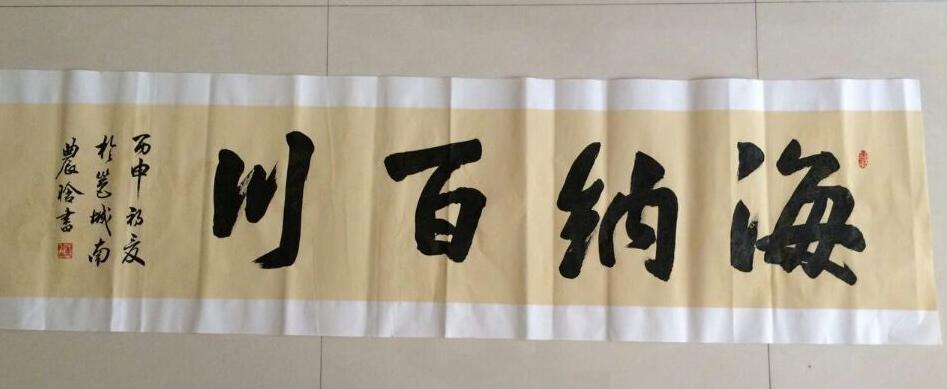 海纳百川
丙申初夏
於邕城南
農晗書